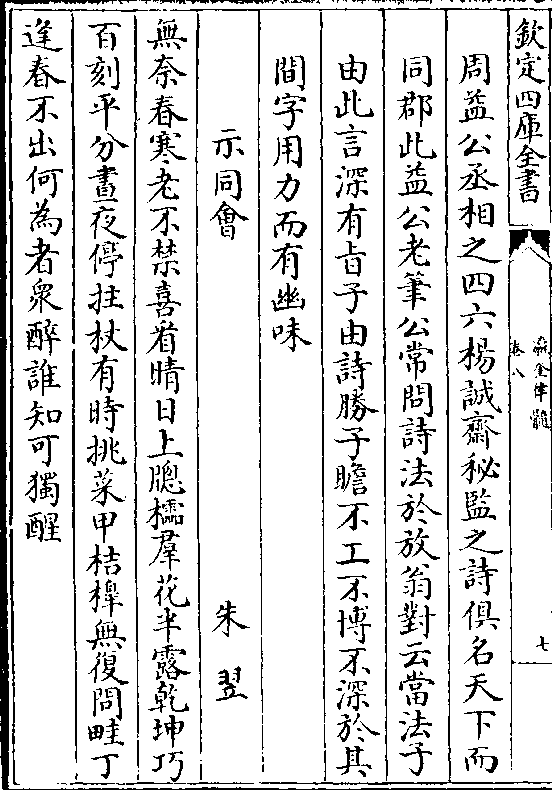 欽定四庫全書
瀛奎律髓
卷八
七
周益公丞相之四六楊誠齋秘監之詩俱名天下而
同郡此益公老筆公常問詩法於放翁對云當法子
由此言深有旨子由詩勝子瞻不工不博不深於其
間字用力而有幽味
示同會
朱翌
無奈春寒老不禁喜看晴日上牕櫺羣花半露乾坤巧
百刻平分晝夜停拄杖有時挑菜甲桔橰無復問畦丁
逢春不出何為者衆醉誰知可獨醒